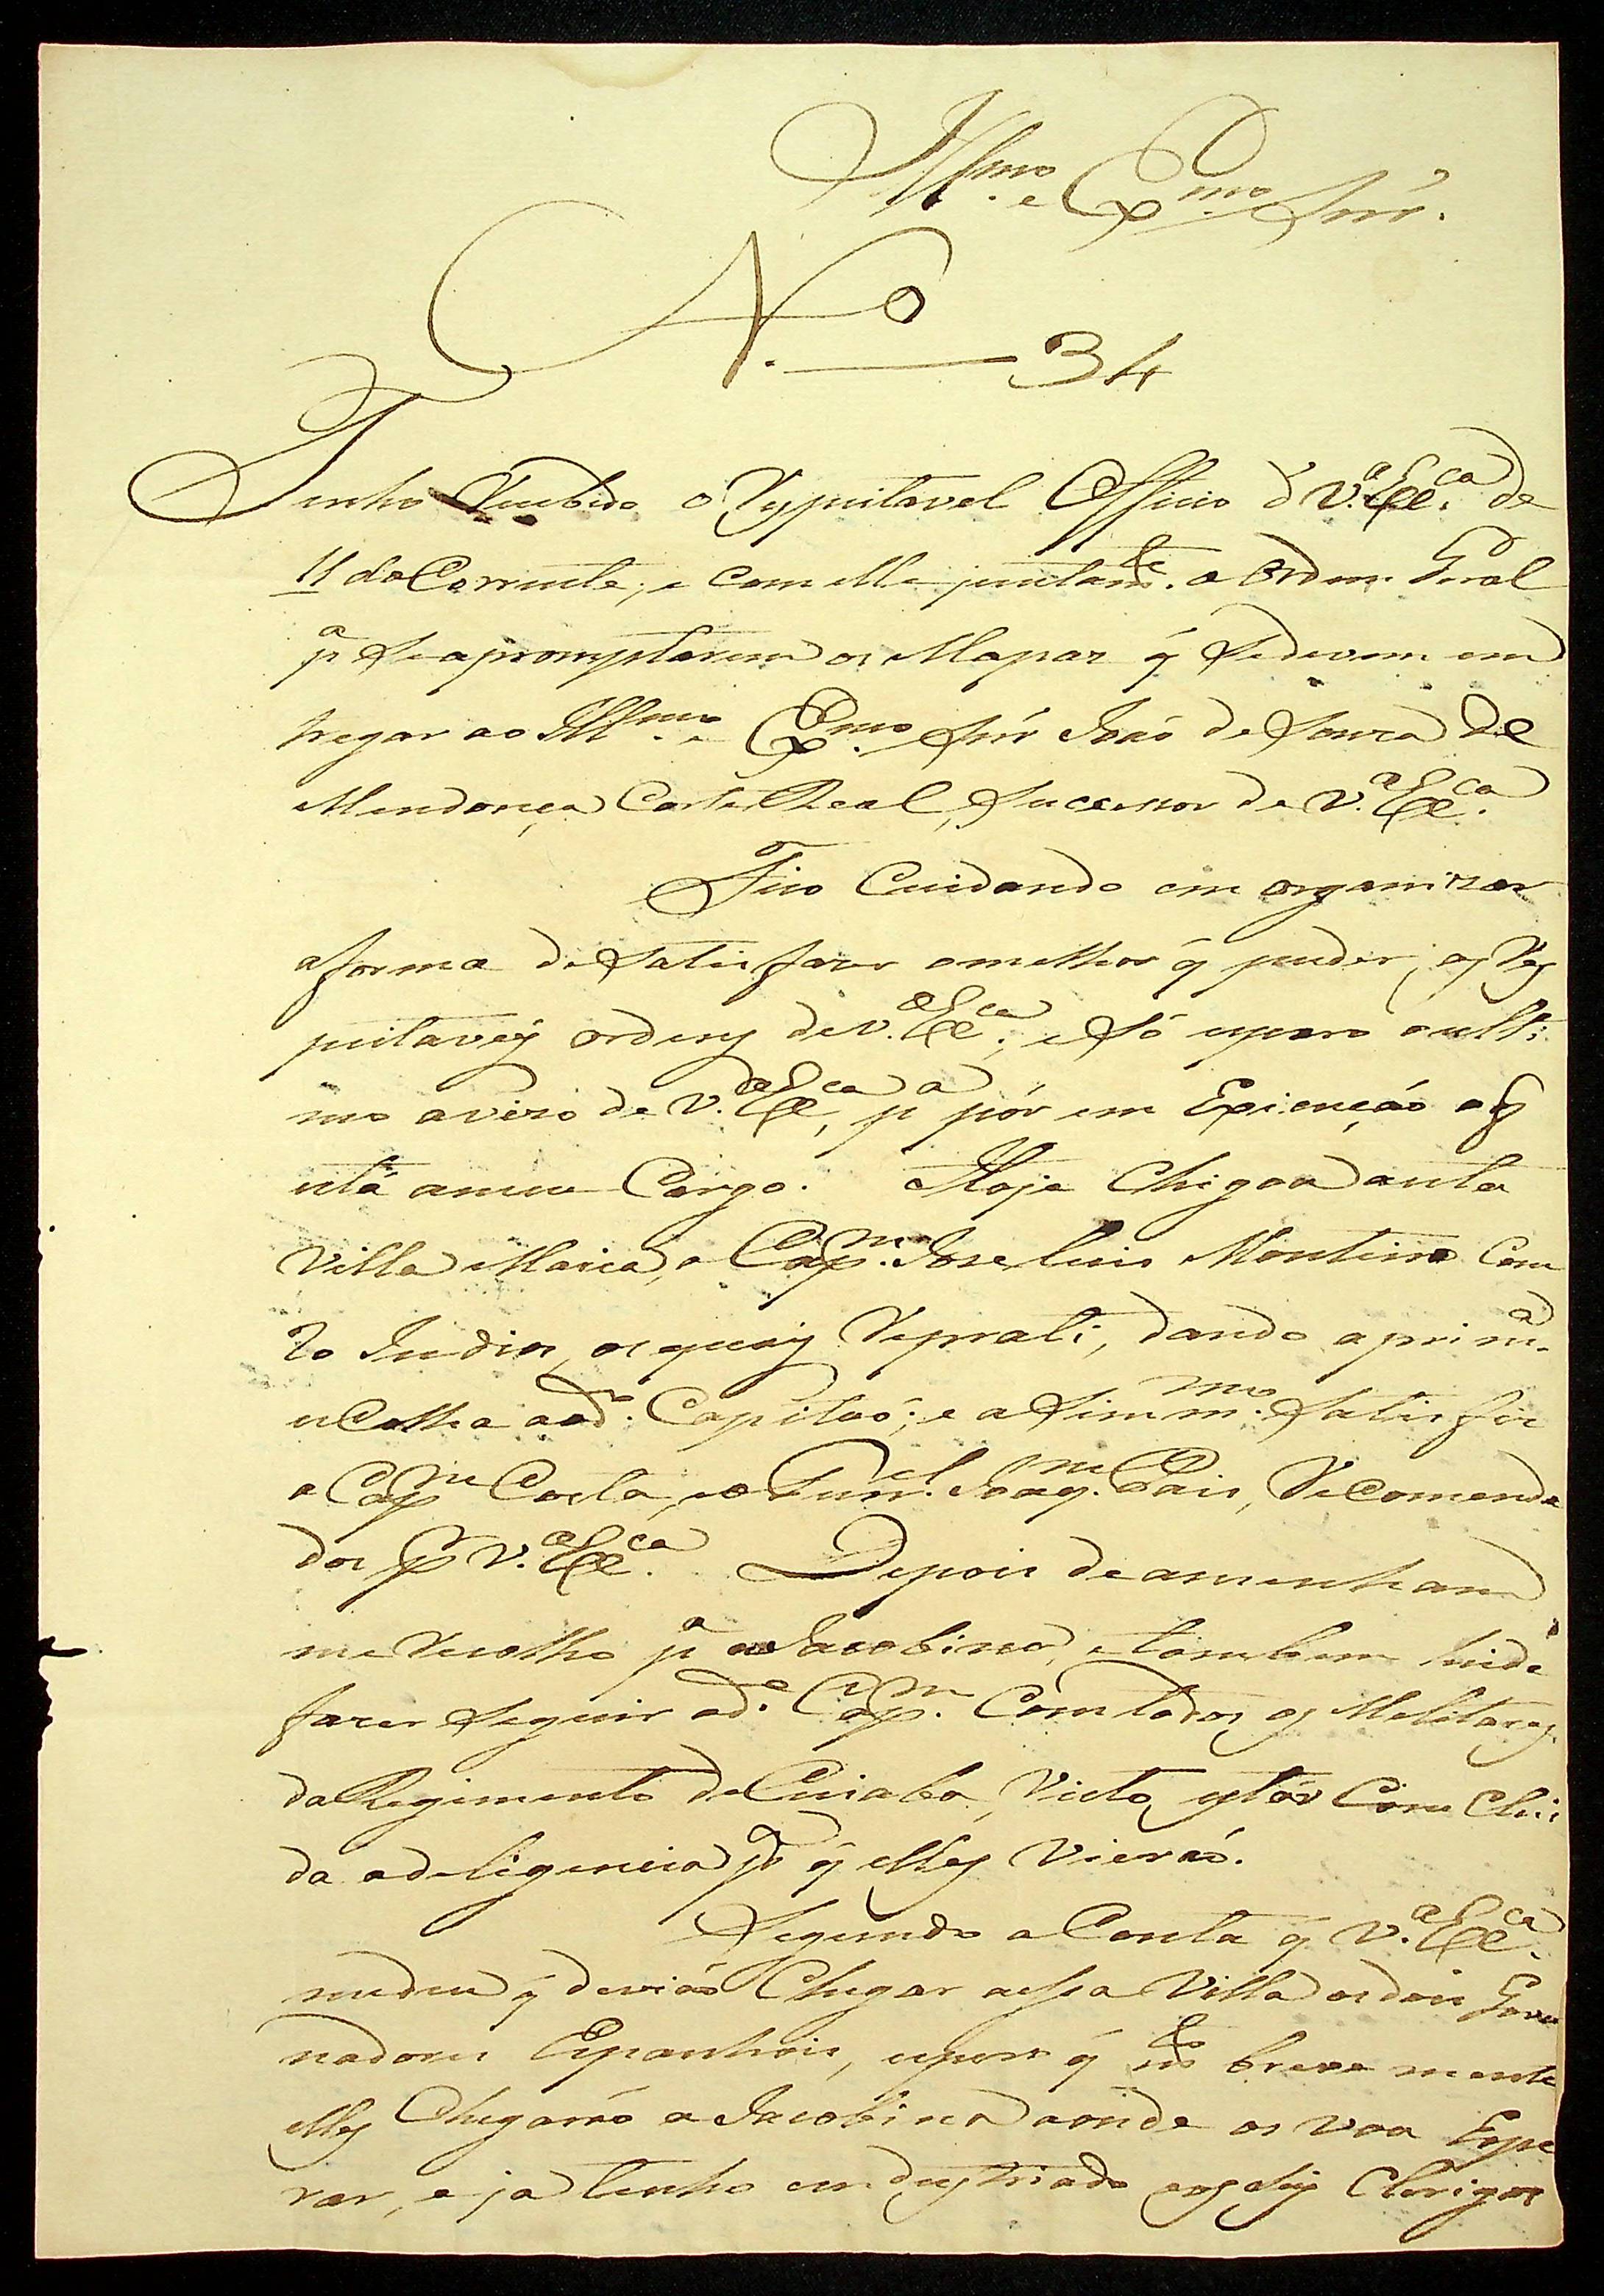 Illmo. e Exmo. Snr̃.
No. 34
Tenho Recebido o Respeitavel Officio de V.a Exca. de
11 do Corrente, e com elle juntamte. a Ordem Geral
pa Se apromptarem os Mapas q̃ Se devem em
tregar ao Illmo. e Exmo. Snr̃ João de Souza de
Mendonça Corte Real, Sucessor de V.a Exca.
Fico Cuidando em organizar
a forma de Satisfazer o melhor q̃ puder, as Res
peitaveis ordens de V.a Exca.; e Só espero o ulti
mo avizo de V.a Exca, pa pôr em Exicução o q̃
está a meu Cargo. Hoje Chigou a esta
Villa Maria, o Capm. Joze Luis Monteiro Com
20 Indios, os quais Reparti, dando a primra.
escolha ao do. Capitaó; e asim mmo. Satisfiz
o Capm Costa, e o Tenel. Joaqm. Pais, Recomenda
dos pr V.a Exca. Depois de amenham
me Recolho pa a Jacobina, e tambem hirde
fazer Seguir o do. Capm. Com todos os Melitares
do Regimento de Cuiabá, Visto estár Comclui
da a deligencia pa q̃ elles Vieraó.
Segundo a Conta q̃ V.a Exca.
me deu q̃ deviaó Chegar a essa Villa os dois Gover
nadores Espanhois, espero q̃ mto breve mente
elles Chegaráo a Jacobina aonde os vou Espe
rar, e ja tenho endustriado os dois Clerigos